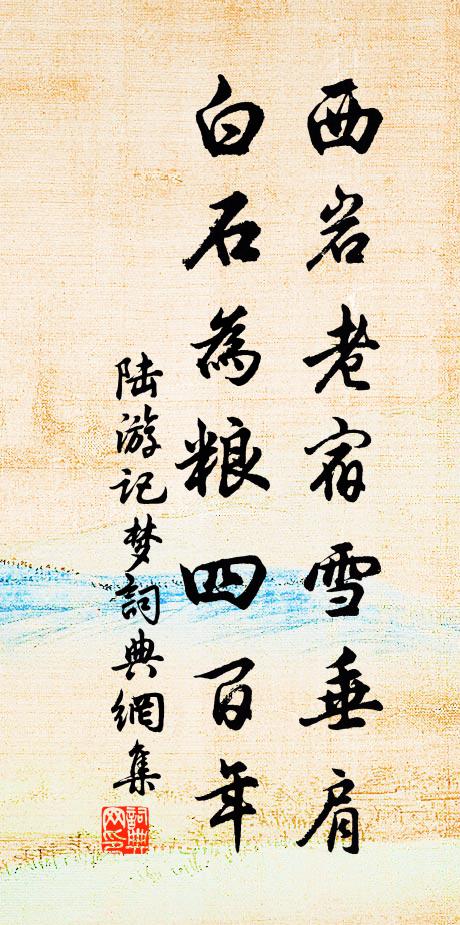 西岩老宿雪垂肩
白石為粮四百年
陆游记梦詞典網集
詞典网印